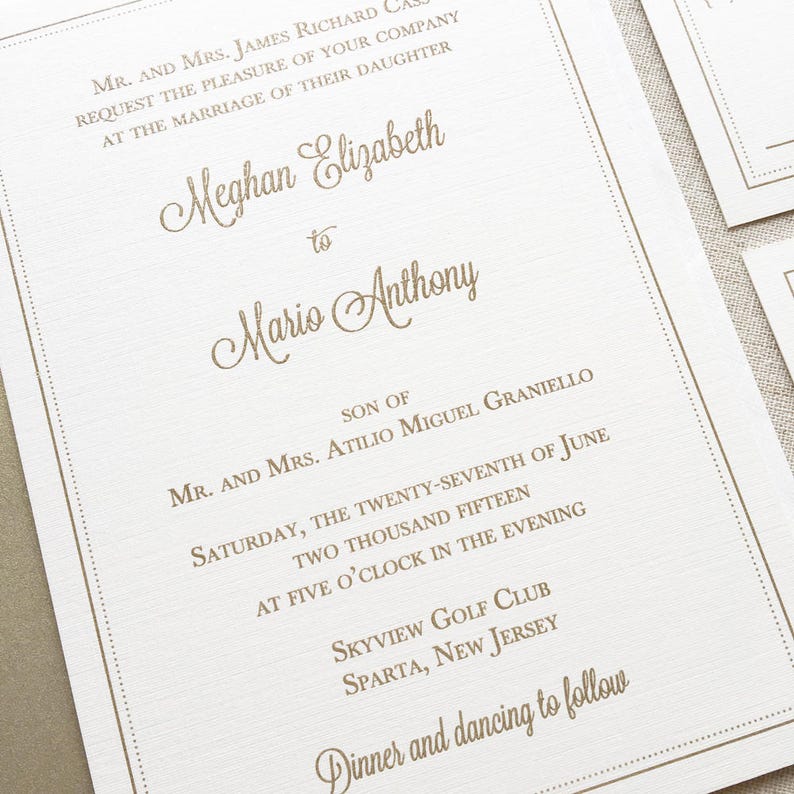 Mr. and Mrs. James Richard Cass
request the pleasure of your company
at the marriage of their daughter
Meghan Elizabeth
to
Mario Anthony
son of
Mr. and Mrs. Atilio Miguel Graniello
Saturday, the twenty-seventh of June
two thousand fifteen
at five o'clock in the evening
Skyview Golf Club
Sparta, New Jersey
Dinner and dancing to follow